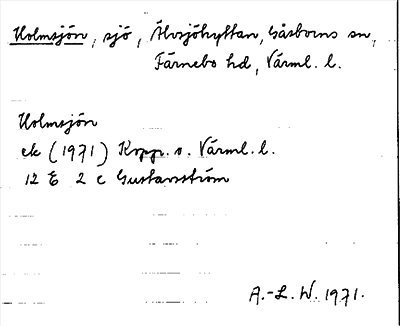 Holmsjön, sjö, Älvsjöhyttan, Gåsborns sn,
Färnebo hd, Värml. l.
Holmsjön
ek (1971) Kopp. o. Värml. l.
12 E 2 c Gustavsström
A.-L. W. 1971.